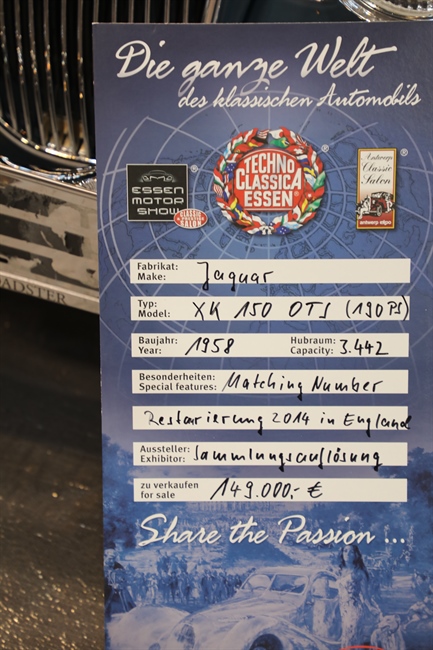 Die ganze Welt
des klassischen Automobils
TECHNO
CLASSICA
ESSEN
®
ESSEN
MOTOR
SHOW
CLASSIC
& PRESTIGE
SALON
®
Antwerp
Classic
Salon
antwerp expo
®
ROADSTER
Fabrikat:
Make: Jaguar
Typ:
Model: XK 150 OTS (190 PS)
Baujahr: Hubraum:
Year: 1958 Capacity: 3.442
Besonderheiten:
Special features: Matching Number
Restaurierung 2014 in England
Aussteller:
Exhibitor: Sammlungsauflösung
zu verkaufen
for sale 149.000,- €
Share the Passion ...